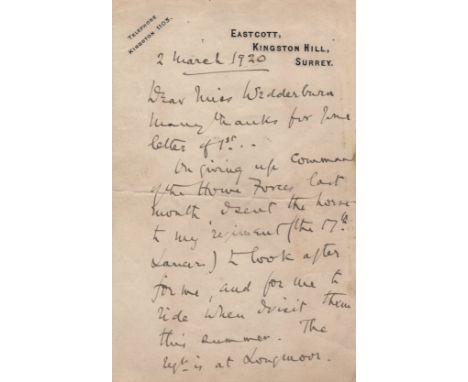 TELEPHONE
KINGSTON 1103.
EASTCOTT,
KINGSTON HILL,
SURREY.
2 March 1920
Dear Miss Wedderburn
Many thanks for your
letter of 1st..
On giving up command
of the Home Forces last
month, I sent the horse
to my regiment (the 17th
Lancers) to look after
for me, and for me to
ride when I visit them
this summer. The
regt is at Longmoor.